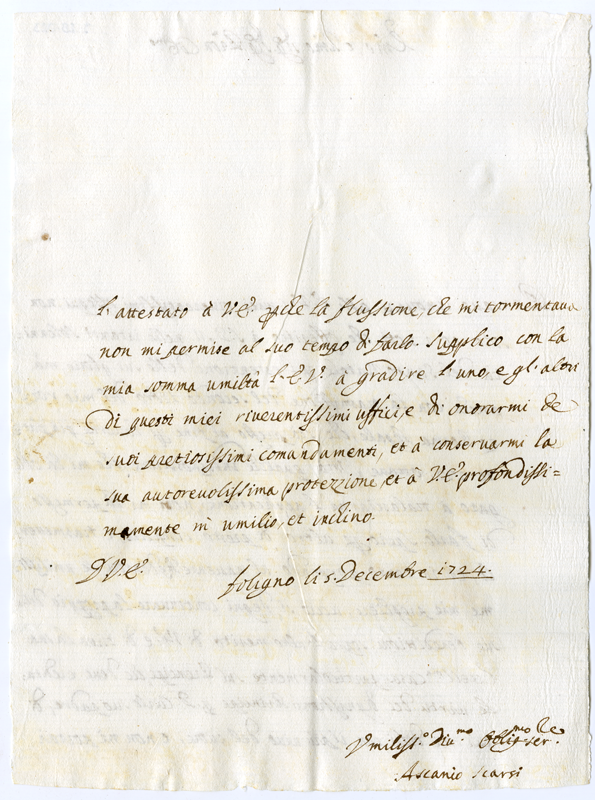 l'attestato à V.E. pche la flussione, che mi tormentava
non mi permise al suo tempo di farlo. supplico con la
mia somma umiltà l'E.V. à gradire l'uno, e gl'altri
di questi miei riverentissimi ufficij, e di onorarmi de
suoi pretiosissimi comandamenti, et à conservarmi la
sua autorevolissima protezzione, et à V.E. profondissi=
mamente m'umilio, et inchino.
D.V.E.
foligno li 5. Decembre 1724.
Vmiliss.º Diu.mo Oblig.mo ser.
Ascanio Scarsi